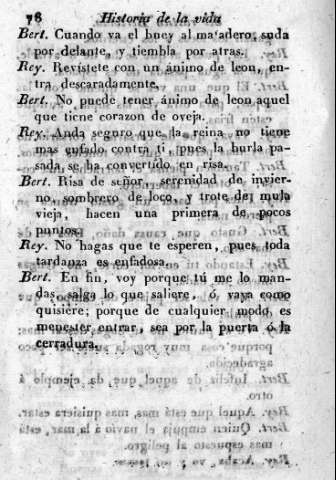 78 Historia de la vida
Bert. Cuando va el buey al matadero, suda
por delante, y tiembla por atras.
Rey. Revístete con un ánimo de leon, en-
tra descaradamente.
Bert. No puede tener ánimo de leon aquel
que tiene corazon de oveja.
Rey. Anda seguro que la reina no tiene
mas enfado contra ti, pues la burla pa-
sada se ha convertido en risa.
Bert. Risa de señor, serenidad de invier-
no, sombrero de loco, y trote de mula
vieja, hacen una primera de pocos
puntos.
Rey. No hagas que te esperen, pues toda
tardanza es enfadosa.
Bert. En fin, voy porque tú me lo man-
das, salga lo que saliere, ó, vaya como
quisiere; porque de cualquier modo es
menester entrar, sea por la puerta ó la
cerradura.